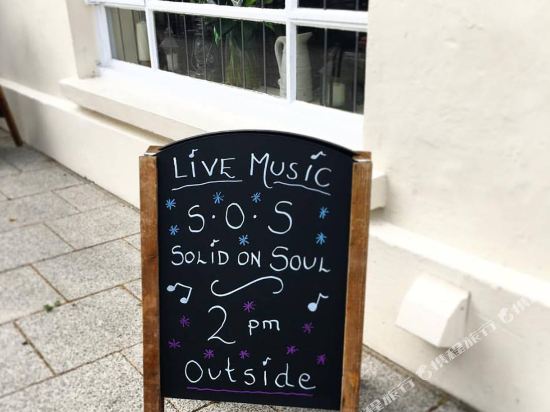 LiVE MUSiC
S·O·S
SOLiD ON SOUL
2 pm
OutSide
携程旅行